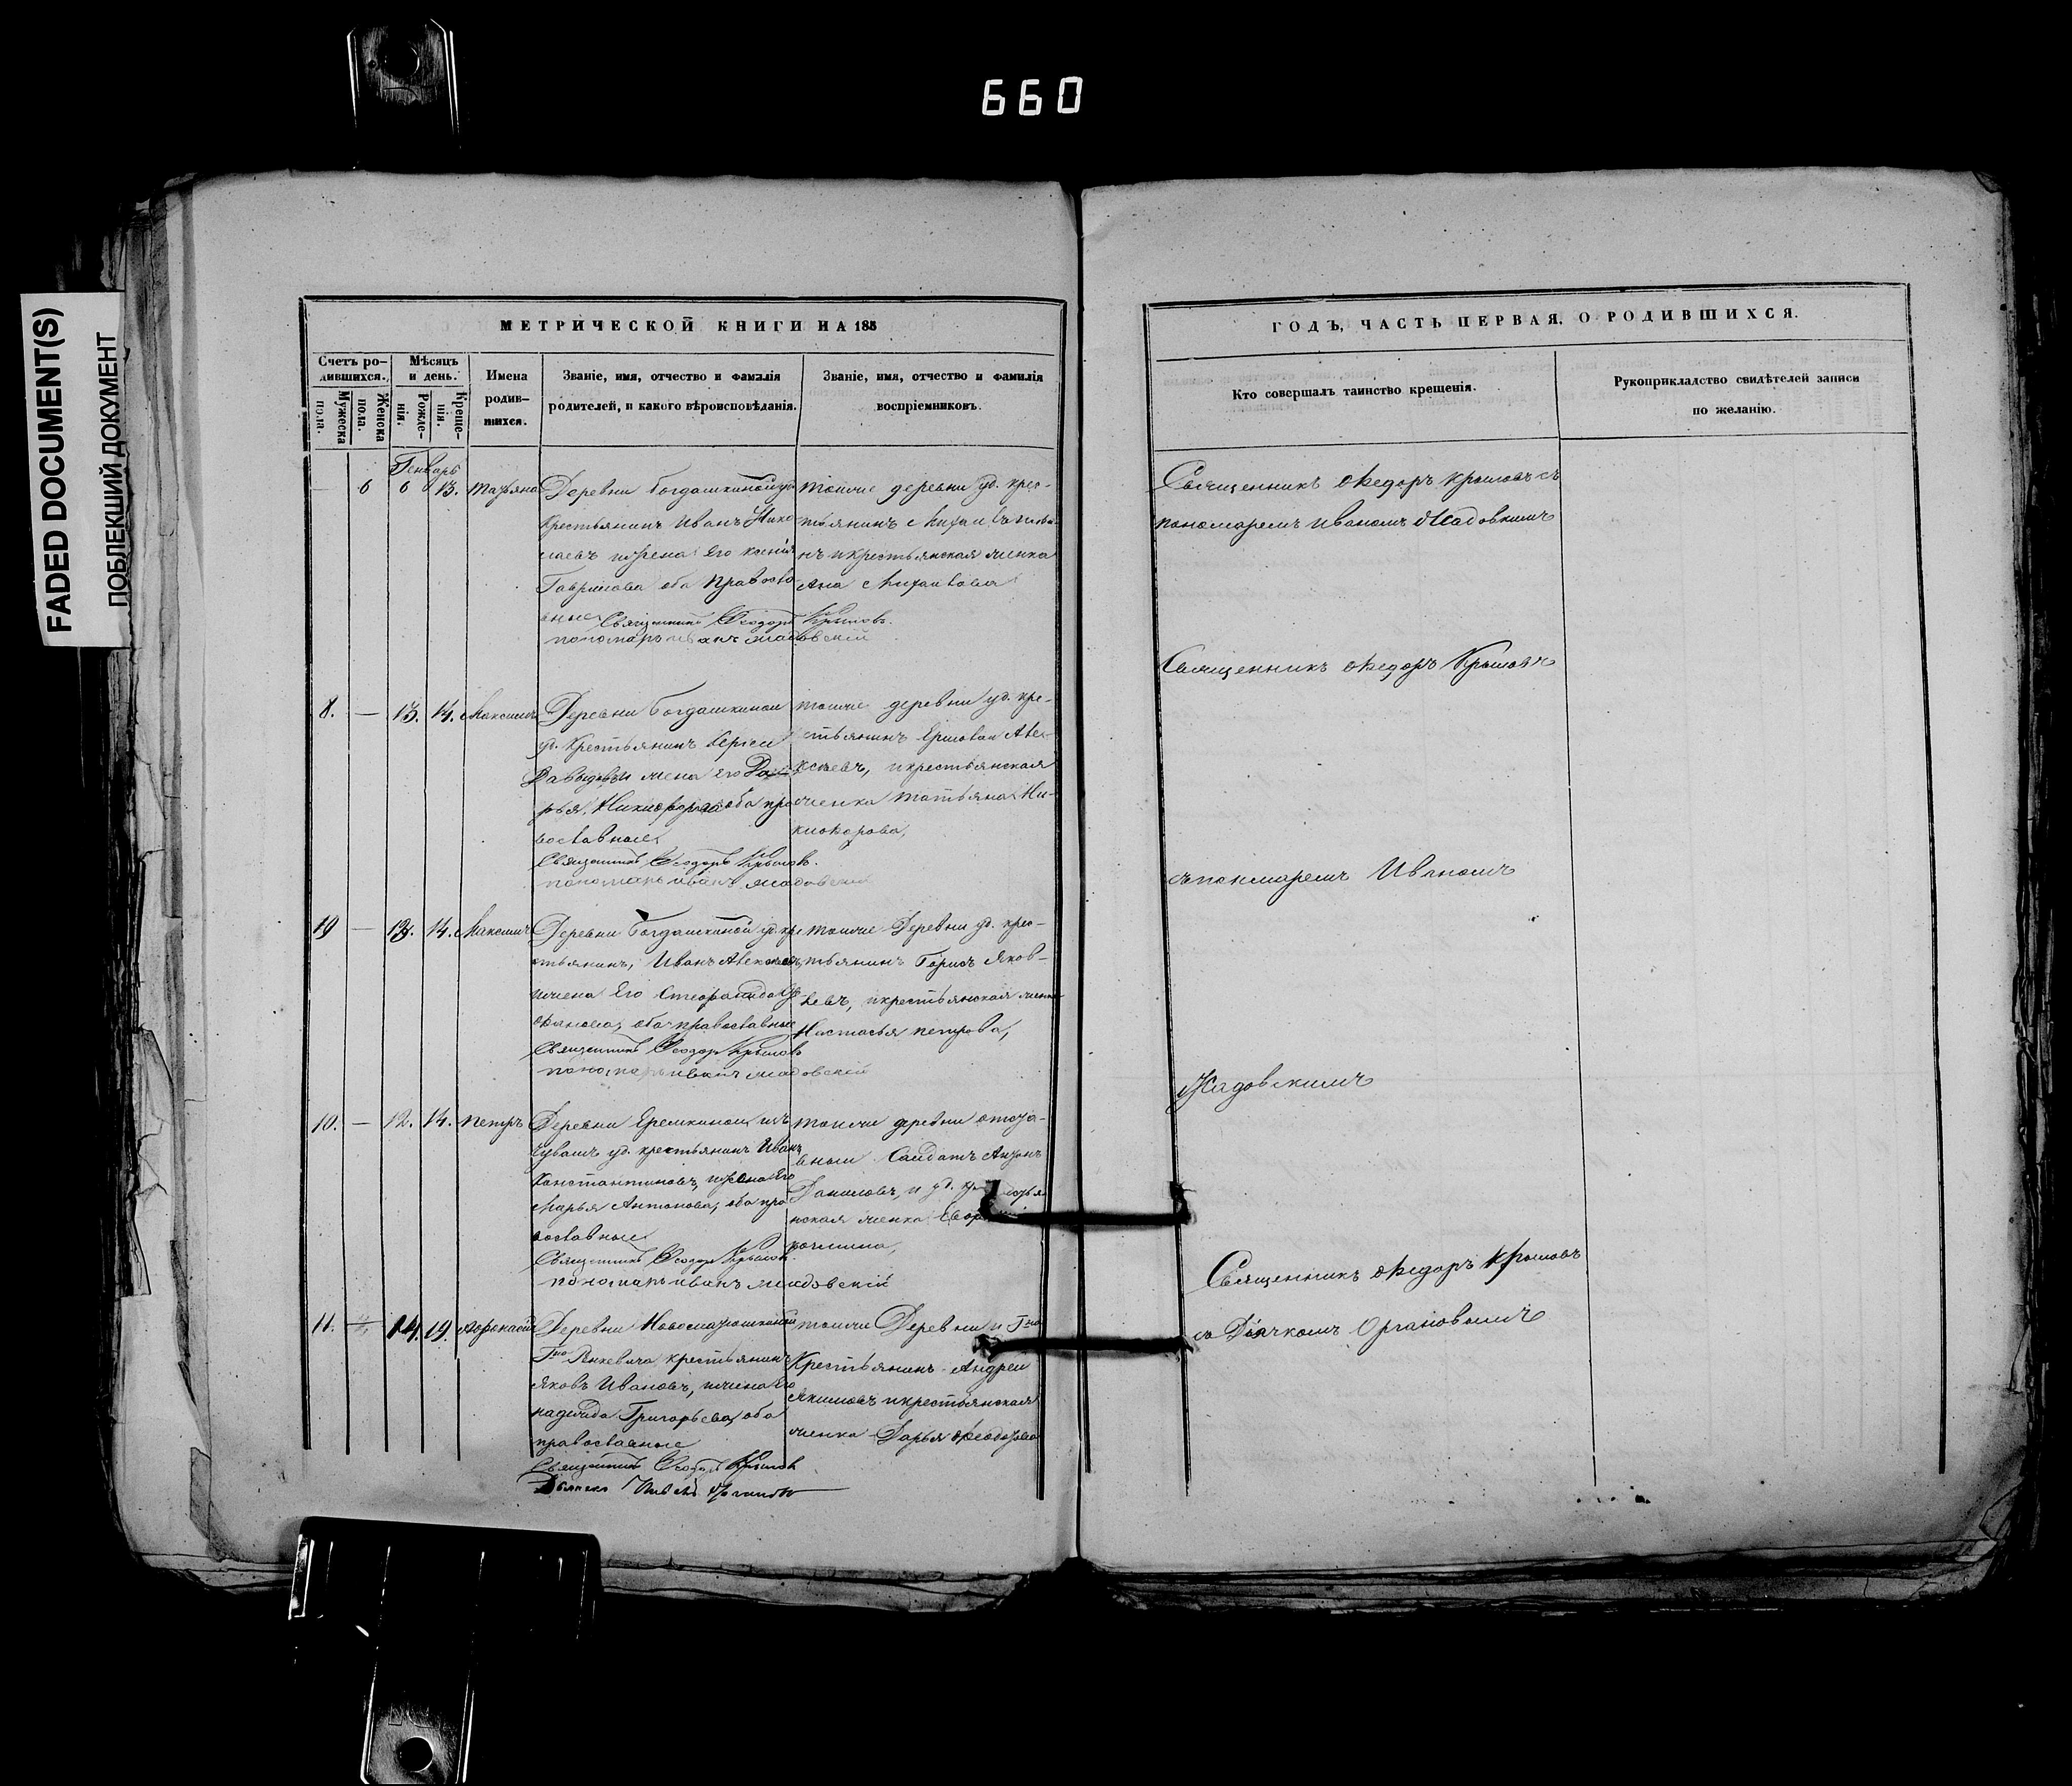 660
FADED DOCUMENT(S)
ПОБЛЕКШИЙ ДОКУМЕНТ
МЕТРИЧЕСКОЙ КНИГИ НА 185
Счетъ ро-
дившихся.
Мужеска
пола.
Женска
пола.
Мѣсяцъ
и день.
Рожде-
нія.
Креще-
нія.
Имена
родив-
шихся.
Званіе, имя, отчество и фамилія
родителей, и какого вѣроисповѣданія.
Званіе, имя, отчество и фамилія
воспріемниковъ.
Генварь
— 6 6 13. Татьяна
Деревни Богдашкиной уд
Крестьянинъ Иванъ Нико
лаевъ ижена Его Ксенія
Гаврилова оба Правосла
вные
Священникъ Ѳеодоръ Крыловъ.
пономарь иванъ жадовскій
тойже деревни уд. крес-
тьянинъ Михаи
нъ икрестьянская женка
Ана Михаилова
8. — 13. 14. Максимъ
Деревни Богдашкиной
уд. Крестьянинъ Сергеи
Давыдовъ и жена его Да
рья Никифорова оба пра
вославные
Священникъ Ѳеодоръ Крыловъ.
пономарь иванъ жадовскій
тойже деревни уд. кре-
стьянинъ Ермолаи Але-
ксѣевъ, икрестьянская
женка татьяна Ни-
кифорова,
19 — 13. 14. Максимъ
Деревни Богдашкиной уд. кре
стьянинъ, Иванъ Алексѣевъ,
ижена Его Степанида
оба православные
Священникъ Ѳеодоръ Крыловъ
пономарь иванъ жадовскій
тойже Деревни уд. крес-
тьянинъ Борисъ Яков-
левъ, икрестьянская женка
Настасья петрова,
10. — 12. 14. петръ
Деревни Еремкиной изъ
Чувашъ уд. крестьянинъ Иванъ
Константиновъ, ижена Его
Марья Антонова, оба пра
вославные
Священникъ Ѳеодоръ Крыловъ
пономарь иванъ жадовскій
тойже деревни отста-
вный Салдатъ Антонъ
Даниловъ, и уд.
нская женка
11. 14. 19. Афонасій
Деревни
крестьянинъ
Яковъ Ивановъ, ижена Его
надежда Григорьева, оба
православные
Священникъ Ѳеодоръ Крыловъ
тойже Деревни и Гна
Крестьянинъ Андреи
Якимовъ икрестьянская
женка Дарья Феодорова
ГОДЪ, ЧАСТЬ ПЕРВАЯ, О РОДИВШИХСЯ.
Кто совершалъ таинство крещенія.
Рукоприкладство свидѣтелей записи
по желанію.
Священникъ Федоръ Крыловъ съ
пономаремъ Иваномъ Жадовскимъ
Священникъ Федоръ Крыловъ
съ понмаремъ Иваномъ
Жадовскимъ
Священникъ Федоръ Крыловъ
со Дьячкомъ Органовымъ